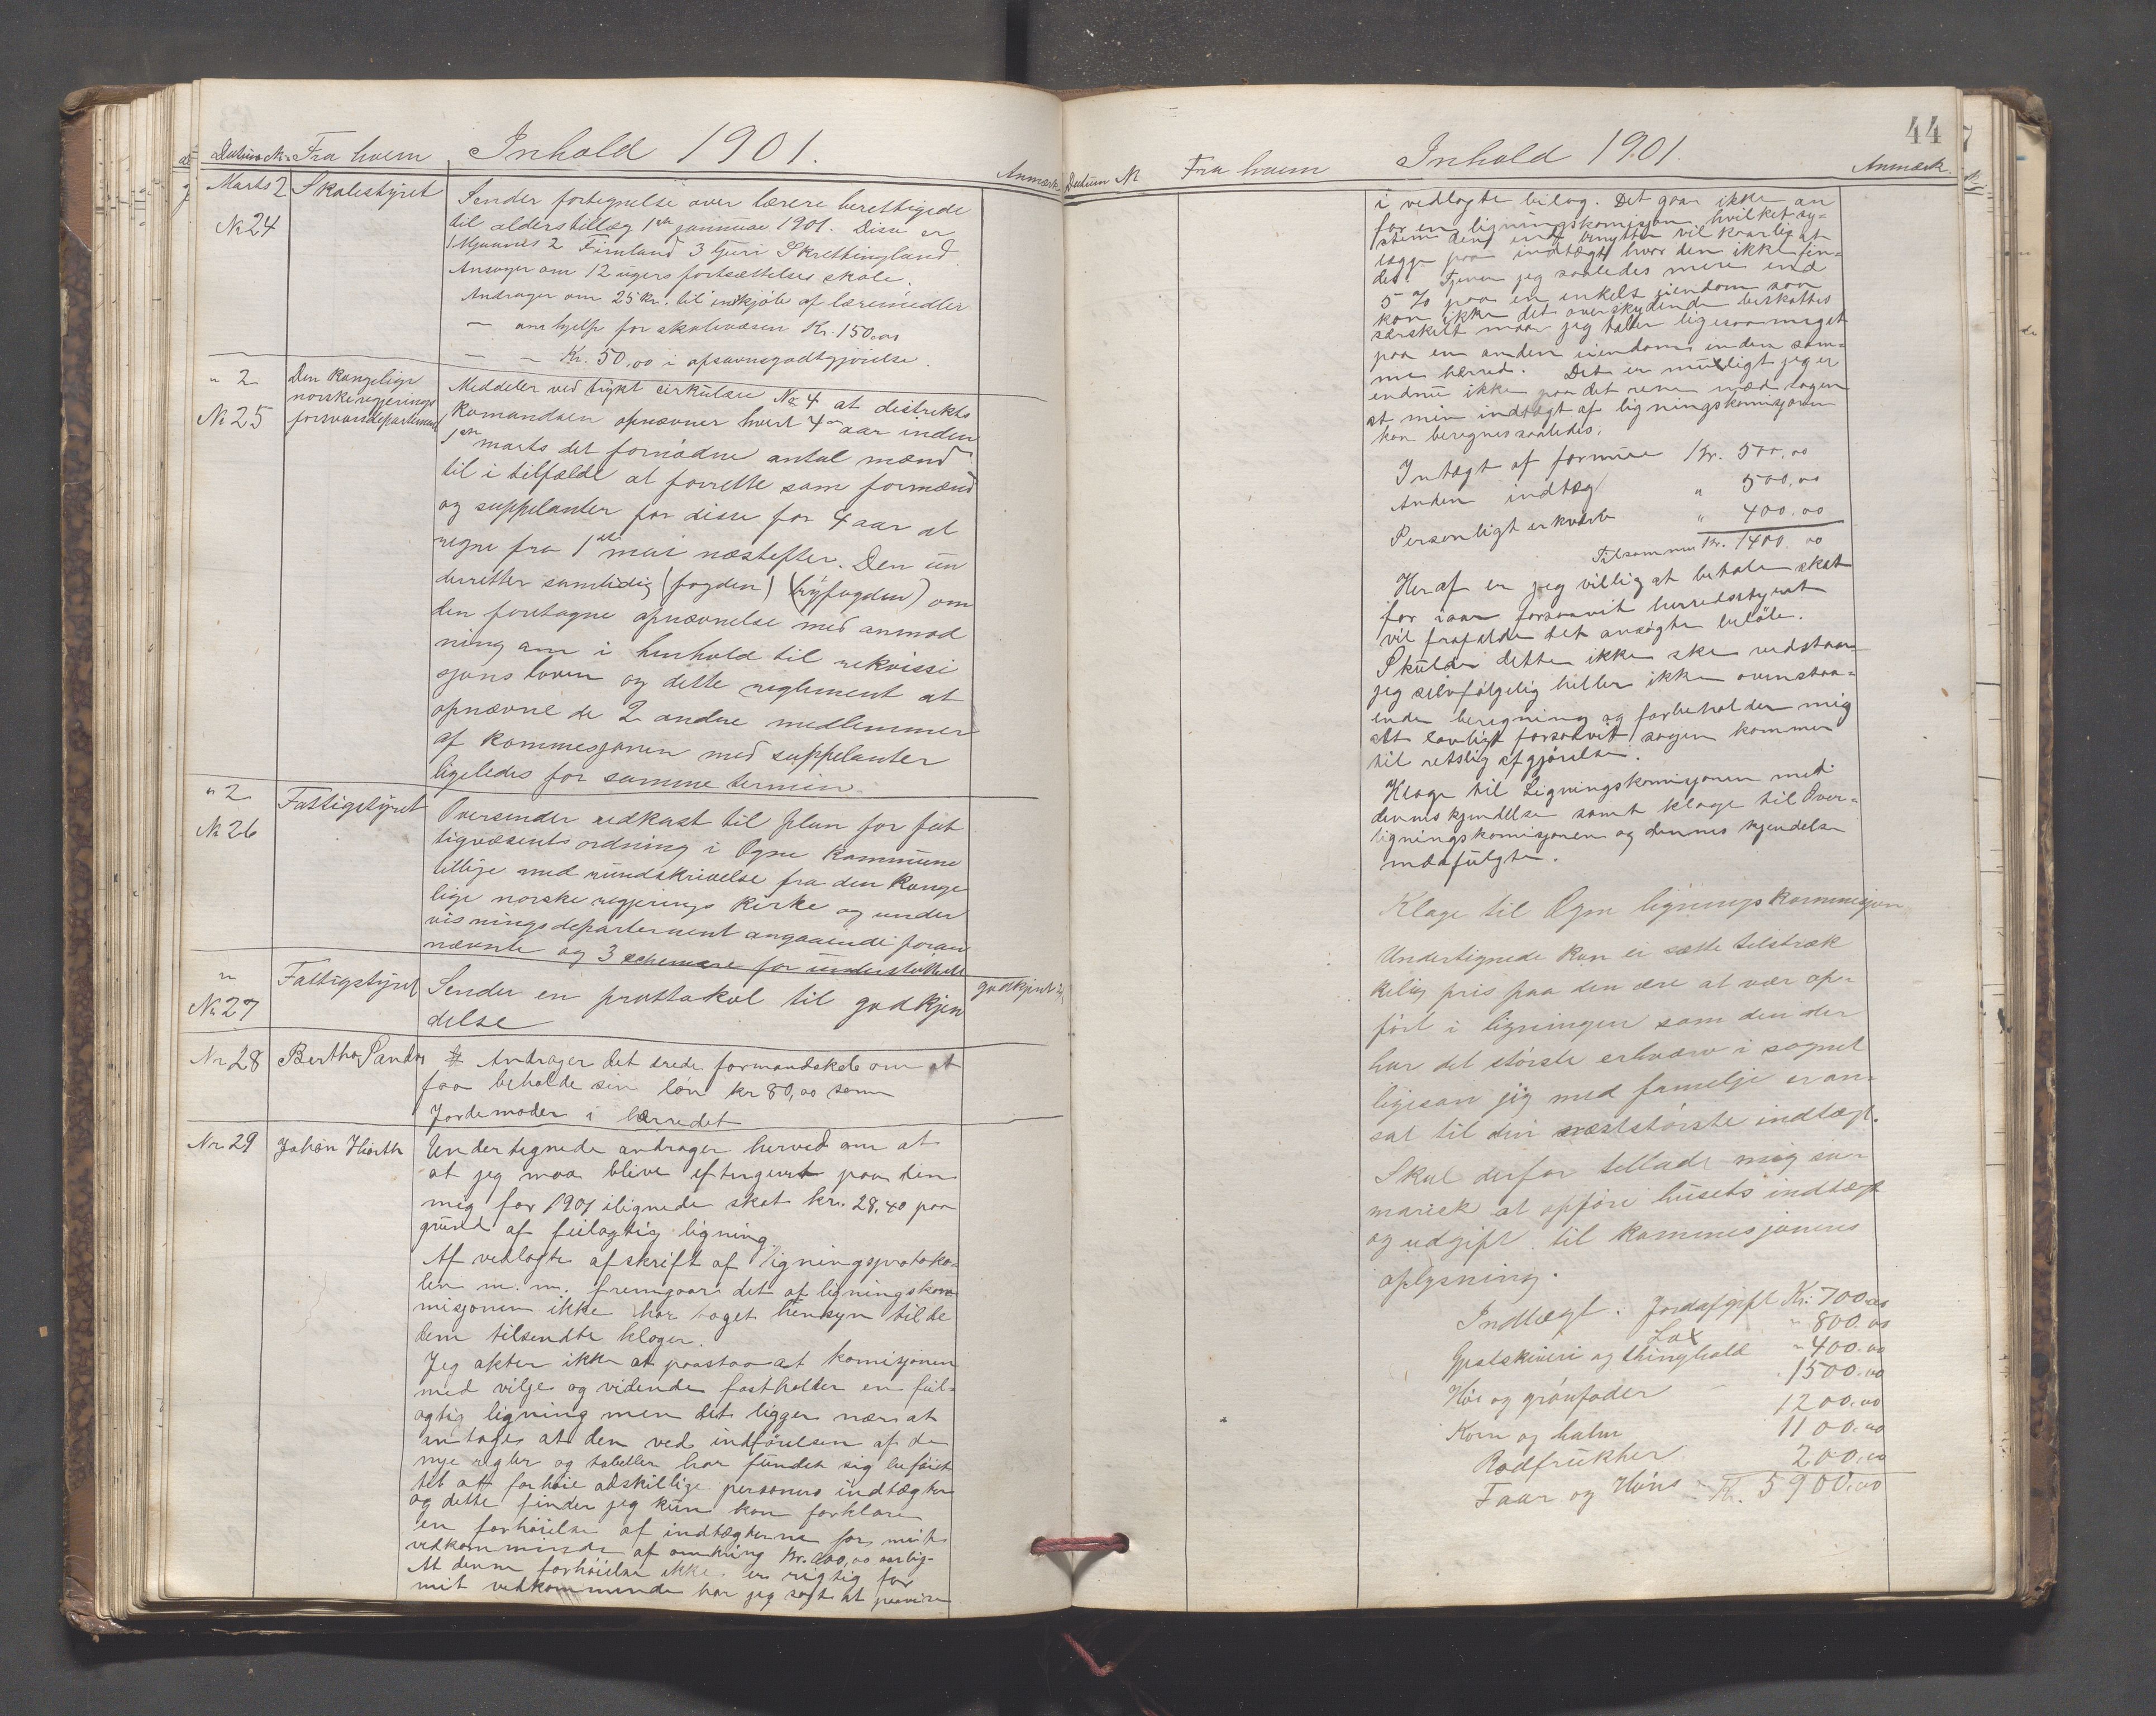 Datum No Fra hvem Inhold 1901. Anmærk
Marts 2 Skolestyret Sender fortegnelse over lærere berettigede
No 24 til alderstillæg 1ste januar 1901. Disse er
1 Mjaanes 2 Finland 3 Gjuri Skrettingland
Ansøger om 12 ugers fortsættelses skole.
Andrager om 25 kr. til indkjøb af læremidler
— om hjelp for skolevæsen Kr. 150.00
— — Kr. 50,00 i afsavnsgodtgjørelse.
" 2 Den Kongelige Meddeler ved trykt cirkulære No 4 at distrikts
norske regjerings
No 25 forsvarsdepartement Komandoen opnævner hvert 4de aar inden
1ste marts det fornødne antal mænd
til i tilfælde at forrette som formænd
og suppelanter for disse for 4 aar at
regne fra 1ste mai næstefter. Den un
derretter samtidig (fogden) (byfogden) om
den foretagne opnævnelse med anmod
ning om i henhold til rekvissi
sjons loven og dette reglement at
opnævne de 2 andre medlemmer
af kommesjonen med suppelanter
ligeledes for samme termin.
" 2 Fattigstyret Oversender udkast til plan for fat
No 26 tigvæsents ordning i Ogne kommune
tillige med rundskrivelse fra den Konge
lige norske regjerings Kirke og under
visningsdepartement angaaende foran
nævnte og 3 schemaer for understøttede
" Fattigstyret Sender en prottokol til godkjen godkjent
No 27 delse
Nr 28 Bertha Sandv Andrager det ærede formandskab om at
faa beholde sin løn kr 80,00 som
Jordemoder i herredet
Nr 29 Johan Hiorth Undertegnede andrager herved om at
at jeg maa blive eftergivet paa den
mig for 1901 ilignede skat kr. 28,40 paa
grund af feilagtig ligning.
Af vedlagte afskrift af ligningsprotoko-
len m. m. fremgaar det af ligningskom
misjonen ikke har taget hensyn til de
dem tilsendte klager.
Jeg akter ikke at paastaa at komisjonen
med vilje og vidende fastholder en feil-
agtig ligning men det ligger nær at
antages at den ved indførelsen af de
nye regler og tabeller har fundet sig beføiet
til at forhøie adskillige personers indtægter
og dette finder jeg kun kan forklare
en forhøielse af indtægterne for mit
vedkommende af omkring Kr. 400,00 aarlig.
At denne forhøielse ikke er rigtig for
mit vedkommende har jeg søgt at paavise
44
Datum No Fra hvem Inhold 1901. Anmærk.
i vedlagte bilag. Det gaar ikke an
for en ligningskomisjon hvilket sy-
stem den end benytter vilkaarlig at
lægge paa indtægt hvor den ikke fin-
des. Tjener jeg saaledes mere end
5 % paa en enkelt eiendom saa
kan ikke det overskydende beskattes
særskilt naar jeg taber ligesaameget
paa en anden eiendom inden sam-
me herred. Det er muligt jeg er
endnu ikke paa det rene med sagen
at min indtægt af ligningskomisjonen
kan beregnes saaledes:
Intægt af formue Kr. 500.00
Anden indtæg " 500.00
Personligt erhverv " 400.00
Tilsammen Kr. 1400.00
Heraf er jeg villig at betale skat
for iaar forsaavit herredsstyret
vil frafalde det ansøgte beløb.
Skulde dette ikke ske vedstaar
jeg selvfølgelig heller ikke ovenstaa-
ende beregning og forbeholder mig
alt lovligt forsaavit sagen kommer
til retslig afgjørelse.
Klage til Ligningskomisjonen med
dennes kjendelse samt klage til Over-
ligningskomisjonen og dennes kjendelse
medfulgte.
Klage til Ogne lignings kommesjon
Undertignede kan ei sætte tilstræk
kelig pris paa den ære at vær op-
ført i ligningen som den der
har det største erhværv i sognet
ligesaa jeg med familje er an-
sat til den næststørste indtægt.
Skal derfor tillade mig su-
marisk at opføre husets indtægt
og udgift til kommesjonens
oplysning.
Indtægt: Jordafgift Kr. 700.00
Lax " 800.00
Gjestskiveri og thinghold " 400.00
Høi og grønfoder 1500.00
Korn og halm 1200.00
Rodfrukher 1100.00
Faar og Høns 200.00
Kr. 5900.00